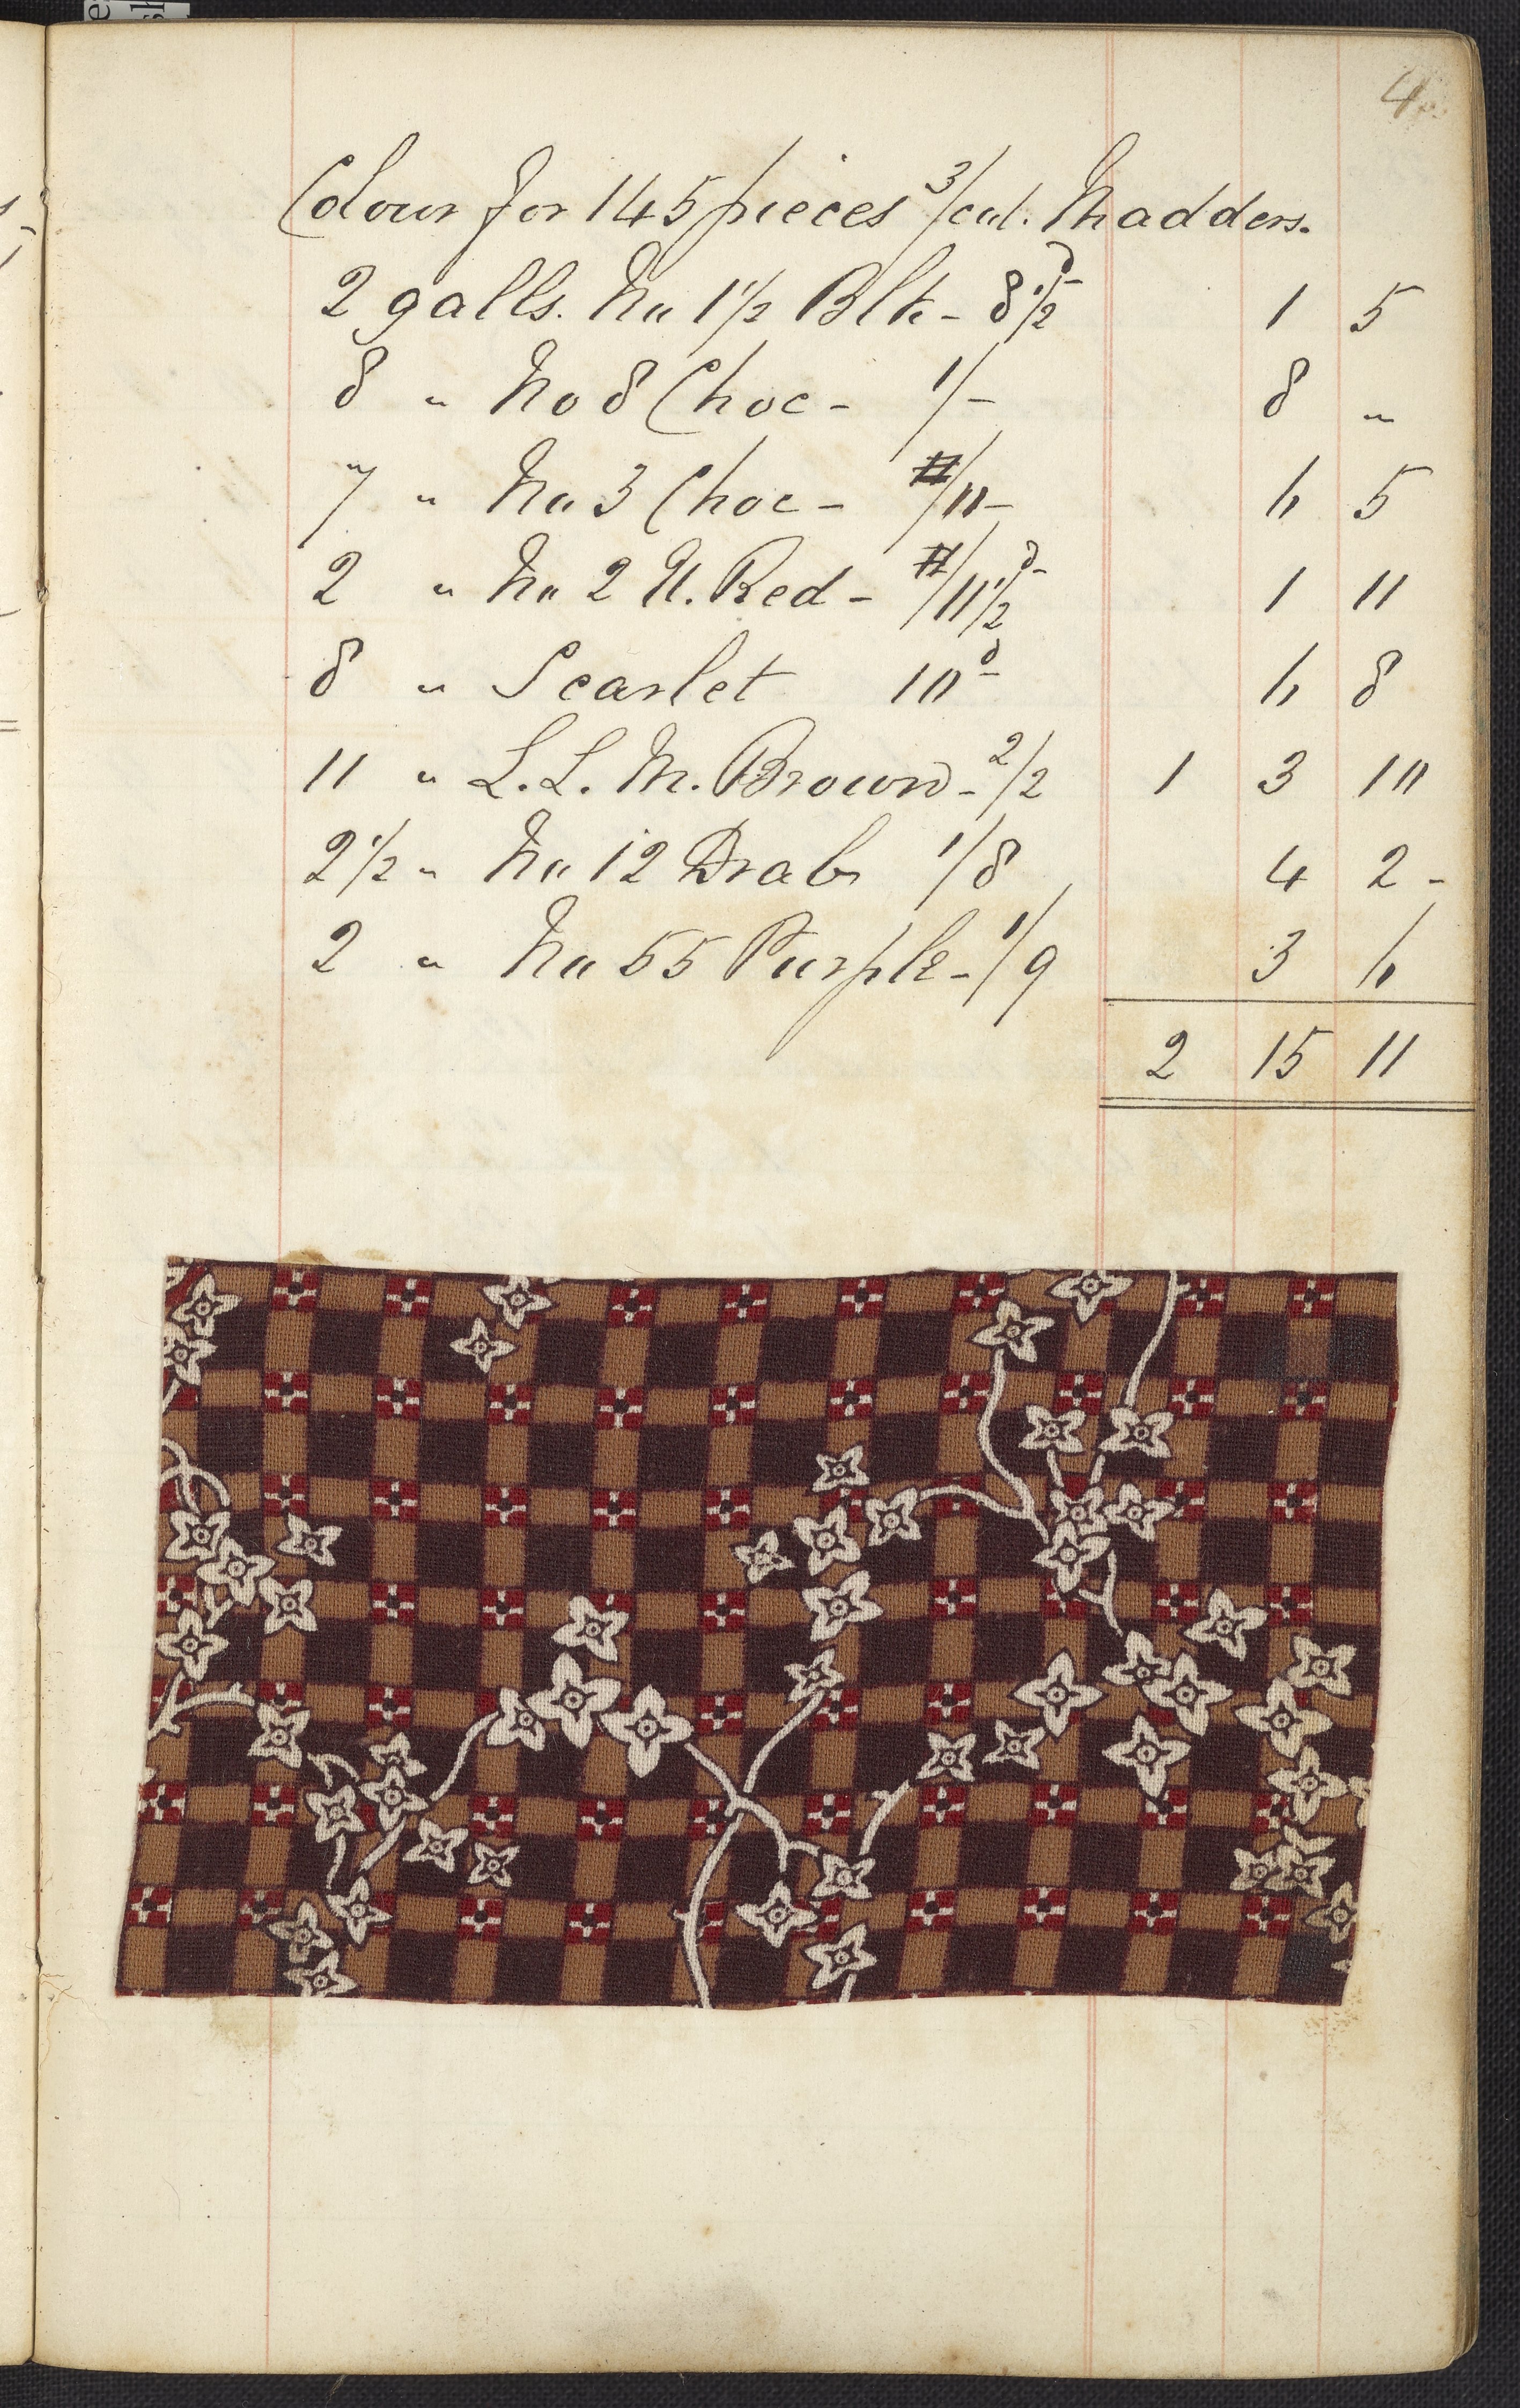 4
Colour for 145 pieces 3/col. Madders.
2 galls. No 1 1/2 Blk - 8 1/2 d 1 5
8 " No 8 Choc - 1/- 8 "
7 " No 3 Choc - /11 - 6 5
2 " No 2 U. Red - /11 1/2 d 1 11
8 " Scarlet 10 d 6 8
11 " L. L. M. Brown - 2/2 1 3 10
2 1/2 " No 12 Drab 1/8 4 2 -
2 " No 55 Purple - 1/9 3 6
2 15 11